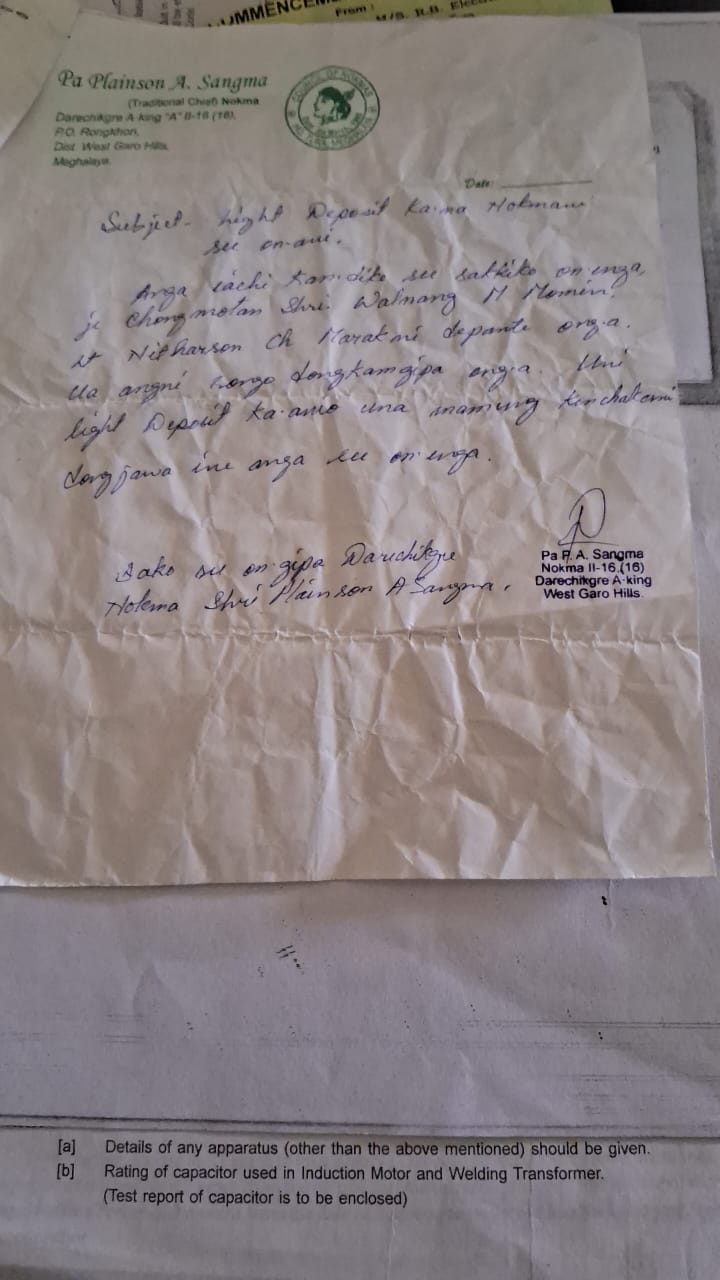 COMMENCEM
From :
M/S. R.B. Elec
Pa Plainson A. Sangma
(Traditional Chief) Nokma
Darechikgre A·king "A" II-16 (16),
P.O. Rongkhon,
Dist. West Garo Hills,
Meghalaya.
COUNCIL OF NOKMAS
Date:
Subject- Light Deposit ka·na Nokmani
see on·ani.
Anga iachi kan·dike see sakkiko on·enga,
je Chongmotan Shri. Walnang M Momin.
Lt Nitharson Ch Marak ni depante ong·a.
Ua angni songo dongkamgipa ong·a. Uni
light Deposit ka·anio una mamung kinchakani
dongjawa ine anga see on·enga.
Iako see on·gipa Darechikgre
Nokma Shri Plainson A Sangma.
Pa P. A. Sangma
Nokma II-16 (16)
Darechikgre A·king
West Garo Hills.
[a] Details of any apparatus (other than the above mentioned) should be given.
[b] Rating of capacitor used in Induction Motor and Welding Transformer.
(Test report of capacitor is to be enclosed)